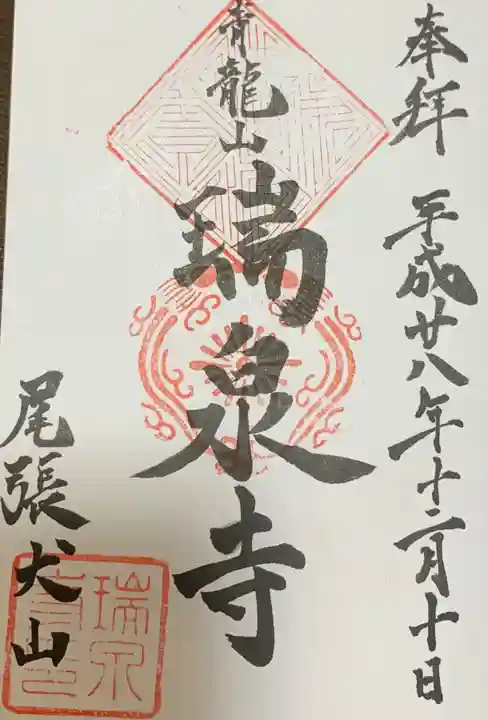 奉拝 平成廿八年十二月十日
青龍山
瑞泉寺
尾張犬山
瑞泉寺印